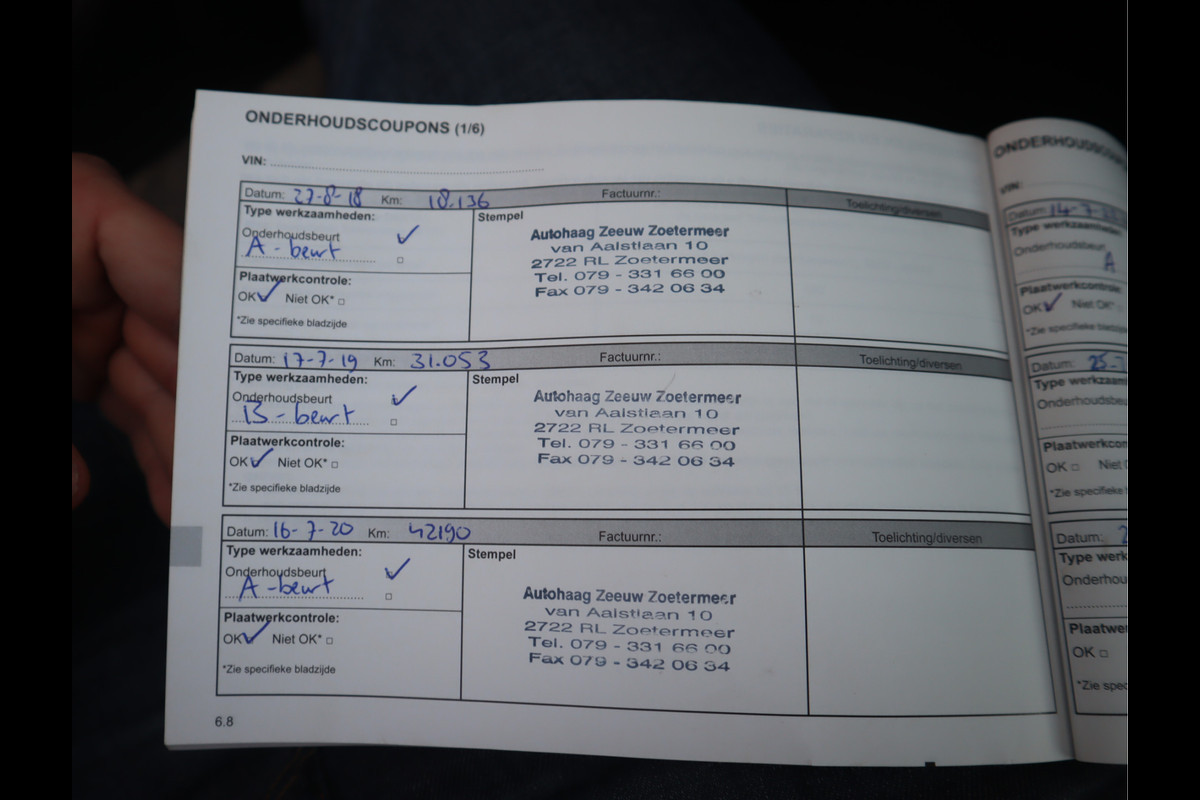 ONDERHOUDSCOUPONS (1/6)
VIN:
Datum: 27-8-18 Km: 18.136 Factuurnr.: Toelichting/diversen
Type werkzaamheden:
Onderhoudsbeurt
A-beurt
Plaatwerkcontrole:
OK Niet OK*
*Zie specifieke bladzijde
Stempel
Autohaag Zeeuw Zoetermeer
van Aalstlaan 10
2722 RL Zoetermeer
Tel. 079 - 331 66 00
Fax 079 - 342 06 34
Datum: 17-7-19 Km: 31.053 Factuurnr.: Toelichting/diversen
Type werkzaamheden:
Onderhoudsbeurt
B-beurt
Plaatwerkcontrole:
OK Niet OK*
*Zie specifieke bladzijde
Stempel
Autohaag Zeeuw Zoetermeer
van Aalstlaan 10
2722 RL Zoetermeer
Tel. 079 - 331 66 00
Fax 079 - 342 06 34
Datum: 16-7-20 Km: 42190 Factuurnr.: Toelichting/diversen
Type werkzaamheden:
Onderhoudsbeurt
A-beurt
Plaatwerkcontrole:
OK Niet OK*
*Zie specifieke bladzijde
Stempel
Autohaag Zeeuw Zoetermeer
van Aalstlaan 10
2722 RL Zoetermeer
Tel. 079 - 331 66 00
Fax 079 - 342 06 34
6.8
VIN:
Datum: 14-7-
Type werkzaamheden:
Onderhoudsbeurt
A
Plaatwerkcontrole:
OK Niet OK*
*Zie specifieke
Datum: 25-
Type
Plaatwerkcon
OK Niet
*Zie specifieke
Datum: 2
Type werk
Onderhou
Plaatwer
OK
*Zie spec